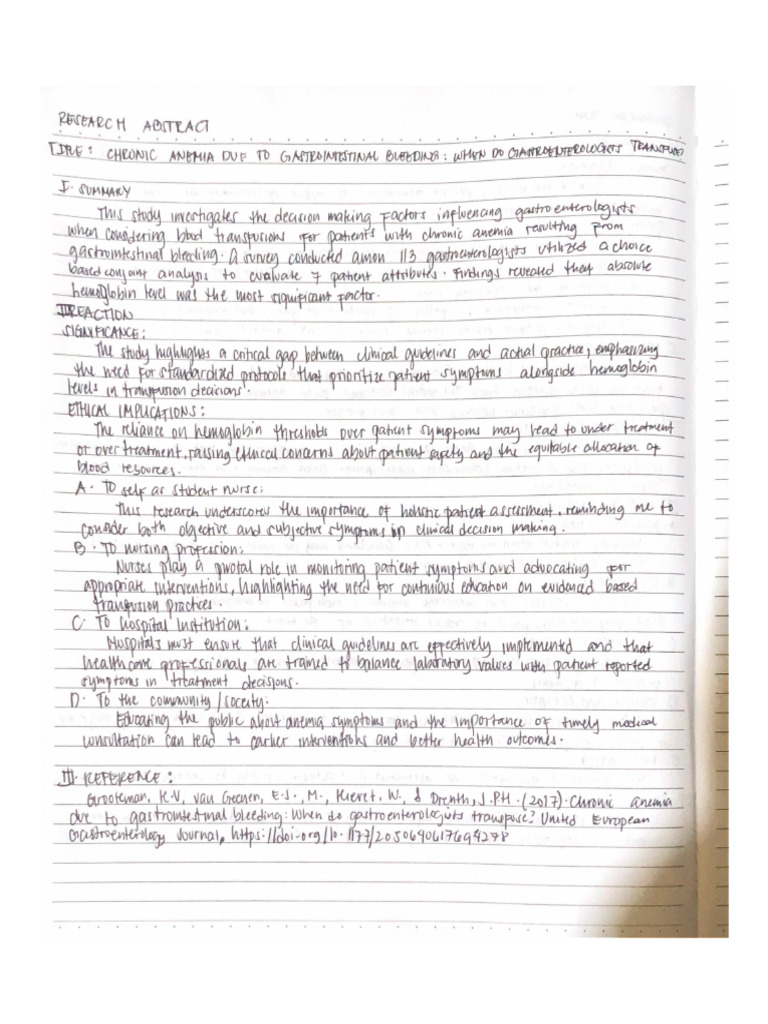 RESEARCH ABSTRACT
TITLE: CHRONIC ANEMIA DUE TO GASTROINTESTINAL BLEEDING: WHEN DO GASTROENTEROLOGISTS TRANSFUSE?
I. SUMMARY
This study investigates the decision making factors influencing gastroenterologists
when considering blood transfusions for patients with chronic anemia resulting from
gastrointestinal bleeding. A survey conducted amon 113 gastroenterologists utilized a choice
based conjoint analysis to evaluate 7 patient attributes. Findings revealed that absolute
hemoglobin level was the most significant factor.
II. REACTION
SIGNIFICANCE:
The study highlights a critical gap between clinical guidelines and actual practice, emphasizing
the need for standardized protocols that prioritize patient symptoms alongside hemoglobin
levels in transfusion decisions.
ETHICAL IMPLICATIONS:
The reliance on hemoglobin thresholds over patient symptoms may lead to under treatment
or over treatment, raising ethical concerns about patient safety and the equitable allocation of
blood resources.
A. To self as student nurse:
This research underscores the importance of holistic patient assessment, reminding me to
consider both objective and subjective symptoms in clinical decision making.
B. To nursing profession:
Nurses play a pivotal role in monitoring patient symptoms and advocating for
appropriate interventions, highlighting the need for continuous education on evidenced based
transfusion practices.
C. To hospital Institution:
Hospitals must ensure that clinical guidelines are effectively implemented and that
healthcare professionals are trained to balance laboratory values with patient reported
symptoms in treatment decisions.
D. To the community/society.
Educating the public about anemia symptoms and the importance of timely medical
consultation can lead to earlier interventions and better health outcomes.
III. REFERENCE:
Grooteman, K.V, van Geenen, E.J., M., Kievit, W., & Drenth, J.P.H. (2017). Chronic anemia
due to gastrointestinal bleeding: When do gastroenterologists transfuse? United European
Gastroenterology Journal, https://doi-org/10.1177/2050640617694278